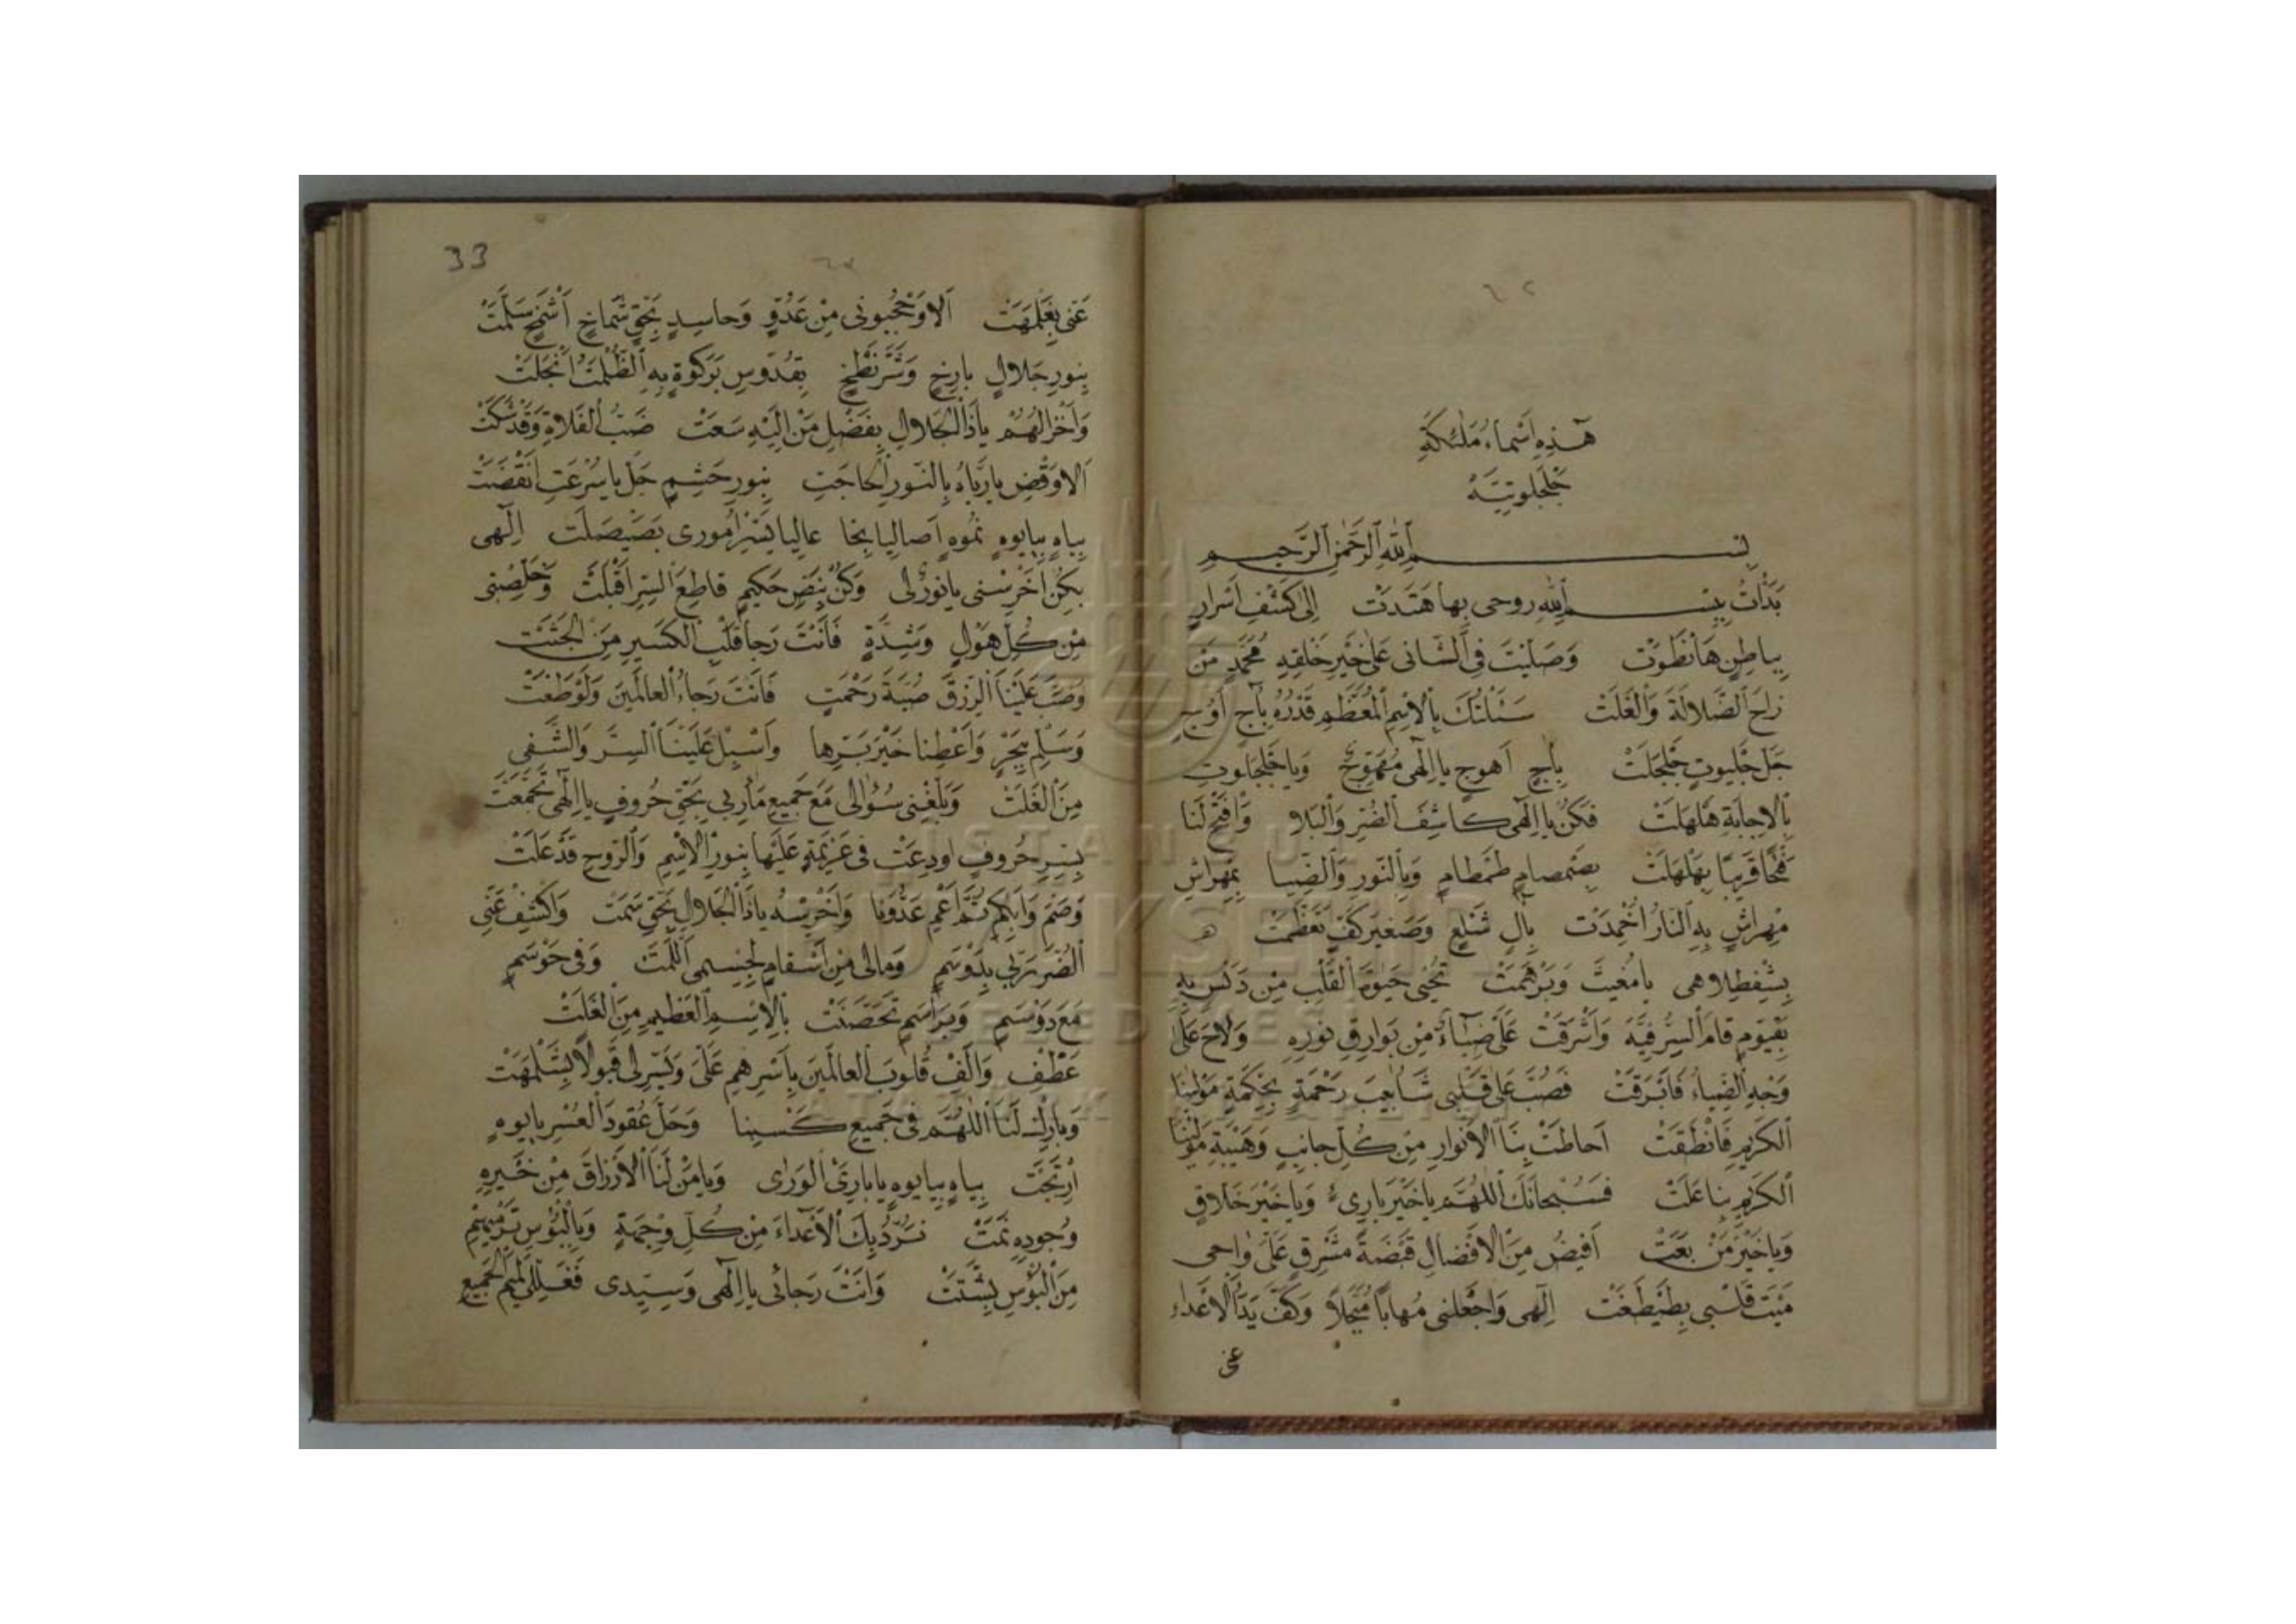 ٦٢
هٰذِهِ اَسْماءُ مَلٰئِكَةِ
جَلْجَلُوتِيَّةْ
بِسْمِ اللّٰهِ الرَّحْمٰنِ الرَّحيمِ
بَدَأْتُ بِبِسْمِ اللّٰهِ روحى بِها هْتَدَتْ اِلىٰ كَشْفِ اَسْرارٍ
بِباطِنِ هَا نْطَوَتْ وَصَلَّيْتَ فِى الثَّانى عَلىٰ خَيْرِ خَلْقِهِ مُحَمَّدٍ مَنْ
زاحَ الضَّلالَةَ وَالْغَلَتْ سَئَلْتُكَ بِالْاِسْمِ الْمُعَظَّمِ قَدْرُهُ بِآجٍ اَوُجٍ
جَلْ جَلْيوتٍ جَلْجَلَتْ بِآجٍ اَهوجٍ يا اِلٰهى مُهَوِّجٌ وَيا جَلْجَلوتِ
بِالْاِجابَةِ هَلْهَلَتْ فَكُنْ يا اِلٰهى كاشِفَ الضُّرِّ وَالْبَلا وَافْتَحْ لَنا
فَتْحًا قَريبًا بِهَلْهَلَتْ بِصَمْصامٍ طَمْطامٍ وَبِالنّورِ وَالضِّيا بِمِهْراشٍ
مِهْراشٍ بِهِ النَّارُ اُخْمِدَتْ بِآلٍ شَلْعٍ وَصَغيرِ كَفٍّ تَعَظَّمَتْ
بِشَفْطِلاهى يا مُغيثَ وَبَرْهَمَتْ تُحْيى حَيٰوةَ الْقَلْبِ مِنْ دَنَسٍ بِهِ
بِقَيّومٍ قامَ السِّرُّ فيهِ وَاَشْرَقَتْ عَلَىَّ ضِيآءٌ مِنْ بَوارِقِ نورِهِ وَلاحَ عَلىٰ
وَجْهِ الضِّياءُ فَابْرَقَتْ فَصُبَّ عَلىٰ قَلْبى شَاٰبيبَ رَحْمَةٍ بِحِكْمَةِ مَوْلٰينَا
الْكَريمِ فَانْطَقَتْ اَحاطَتْ بِنَا الْاَنْوارِ مِنْ كُلِّ جانِبٍ وَهَيْبَةِ مَوْلٰينَا
الْكَريمِ بِنا عَلَتْ فَسُبْحانَكَ اللّٰهُمَّ يا خَيْرَ بارِىءٍ وَيا خَيْرَ خَلّاقٍ
وَيا خَيْرَ مَنْ بَعَتْ اَفيضُ مِنَ الْافْضالِ قَبْضَةً مَشْرِقٍ عَلَىَّ وَاحى
مَيْتَ قَلْبى بِطَيْطَغَتْ اِلٰهى وَاجْعَلْنى مُهابًا مُبَجَّلًا وَكَفَّ يَدَ الْاَعْداءِ
عَنّى
33
٦٣
عَنّى بِغَلْمَهَتْ اَلا وَحْجُبونى مِنْ عَدُوٍّ وَحاسِدٍ بِحَقِّ شَماخٍ اَشْمَخٍ سَلَّمَتْ
بِنورِ جَلالٍ بازِخٍ وَشَرَنْطَخٍ بِقُدّوسِ بَرْكُوةٍ بِهِ الظُّلْمَتُ انْجَلَتْ
وَاَخْرِ الْهُمْ يا ذَا الْجَلالِ بِفَضْلِ مَنْ اِلَيْهِ سَعَتْ ضَبُّ الْفَلاةِ وَقَدْ شَكَتْ
اَلا وَقْضِ يا رَبّاهُ بِالنّورِ الْحاجَتِ بِنورِ حَشِمٍ جَلْ يا سُرْعَتِ انْقَضَتْ
بِياهٍ بِيايوهٍ نَموهٍ اَصاليا بِخا عاليا يَسِّرْ اُمورى بِصَيْصَلَتْ اِلٰهى
بِكِنْ اَخْرِسْنى يا نورُ لى وَكُنْ بِنَصِّ حَكيمٍ قاطِعَ السِّرِّ اَقْبَلَتْ وَخَلِّصْنى
مِنْ كُلِّ هَوْلٍ وَشِدَّةٍ فَاَنْتَ رَجا قَلْبِ الْكَسيرِ مِنَ الْخَبَتْ
وَصُبَّ عَلَيْنَا الرِّزْقَ صُبَّةَ رَحْمَتٍ فَاَنْتَ رَجاءُ الْعالَمينَ وَلَوْ طَغَتْ
وَسَلِّمْ بِبَحْرٍ وَاَعْطِنا خَيْرَ بَرِّها وَاَسْبِلْ عَلَيْنَا السِّتْرَ وَالشَّفى
مِنَ الْغَلَتْ وَبَلِّغْنى سُؤالى مَعَ جَميعِ مَأْرِبى بِحَقِّ حُروفٍ يا اِلٰهى تَجَمَّعَتْ
بِسِرِّ حُروفٍ اودِعَتْ فى عَزيمَتى عَلَيْها بِنورِ الْاِسْمِ وَالرّوحِ قَدْ عَلَتْ
وَصُمَّ وَاَبْكِمْ ثُمَّ اَعْمِ عَدُوَّنا وَاَخْرِسْهُ يا ذَا الْجَلالِ بِحَقِّ سَمَتْ وَاكْشِفْ عَنّى
الضُّرَّ رَبّى بِدَوْسَمٍ وَمالى مِنْ اَسْقامٍ لِجِسْمى اَلَّمَتْ وَفى حَوْسَمٍ
مَعْ دَوْسَمٍ وَبَراسَمٍ تَحَصَّنَتْ بِالْاِسْمِ الْعَظيمِ مِنَ الْغَلَتْ
عَطِّفْ وَاَلِّفْ قُلوبَ الْعالَمينَ بِاَسْرِهِمْ عَلَىَّ وَيَسِّرْ لى قَبولًا بِشَلْمَهَتْ
وَبارِكْ لَنَا اللّٰهُمَّ فى جَميعِ كَسْبِنا وَحَلِّ عُقودَ الْعُسْرِ يايوهٍ
اَرْتَجَتْ بِياهٍ بِيايوهٍ يا بارِئَ الْوَرٰى وَيا مَنْ لَنَا الْاَرْزاقَ مِنْ خَيْرِهِ
وُجودِهِ نَمَتْ نَرُدُّ بِكَ الْاَعْداءَ مِنْ كُلِّ وِجْهَةٍ وَبِالْبُؤْسِ تَرْميهِمْ
مِنَ الْبُؤْسِ بِشَتَّتْ وَاَنْتَ رَجائى يا اِلٰهى وَسَيِّدى فَغَلِّلْ لَميمَ الْجَميعِ